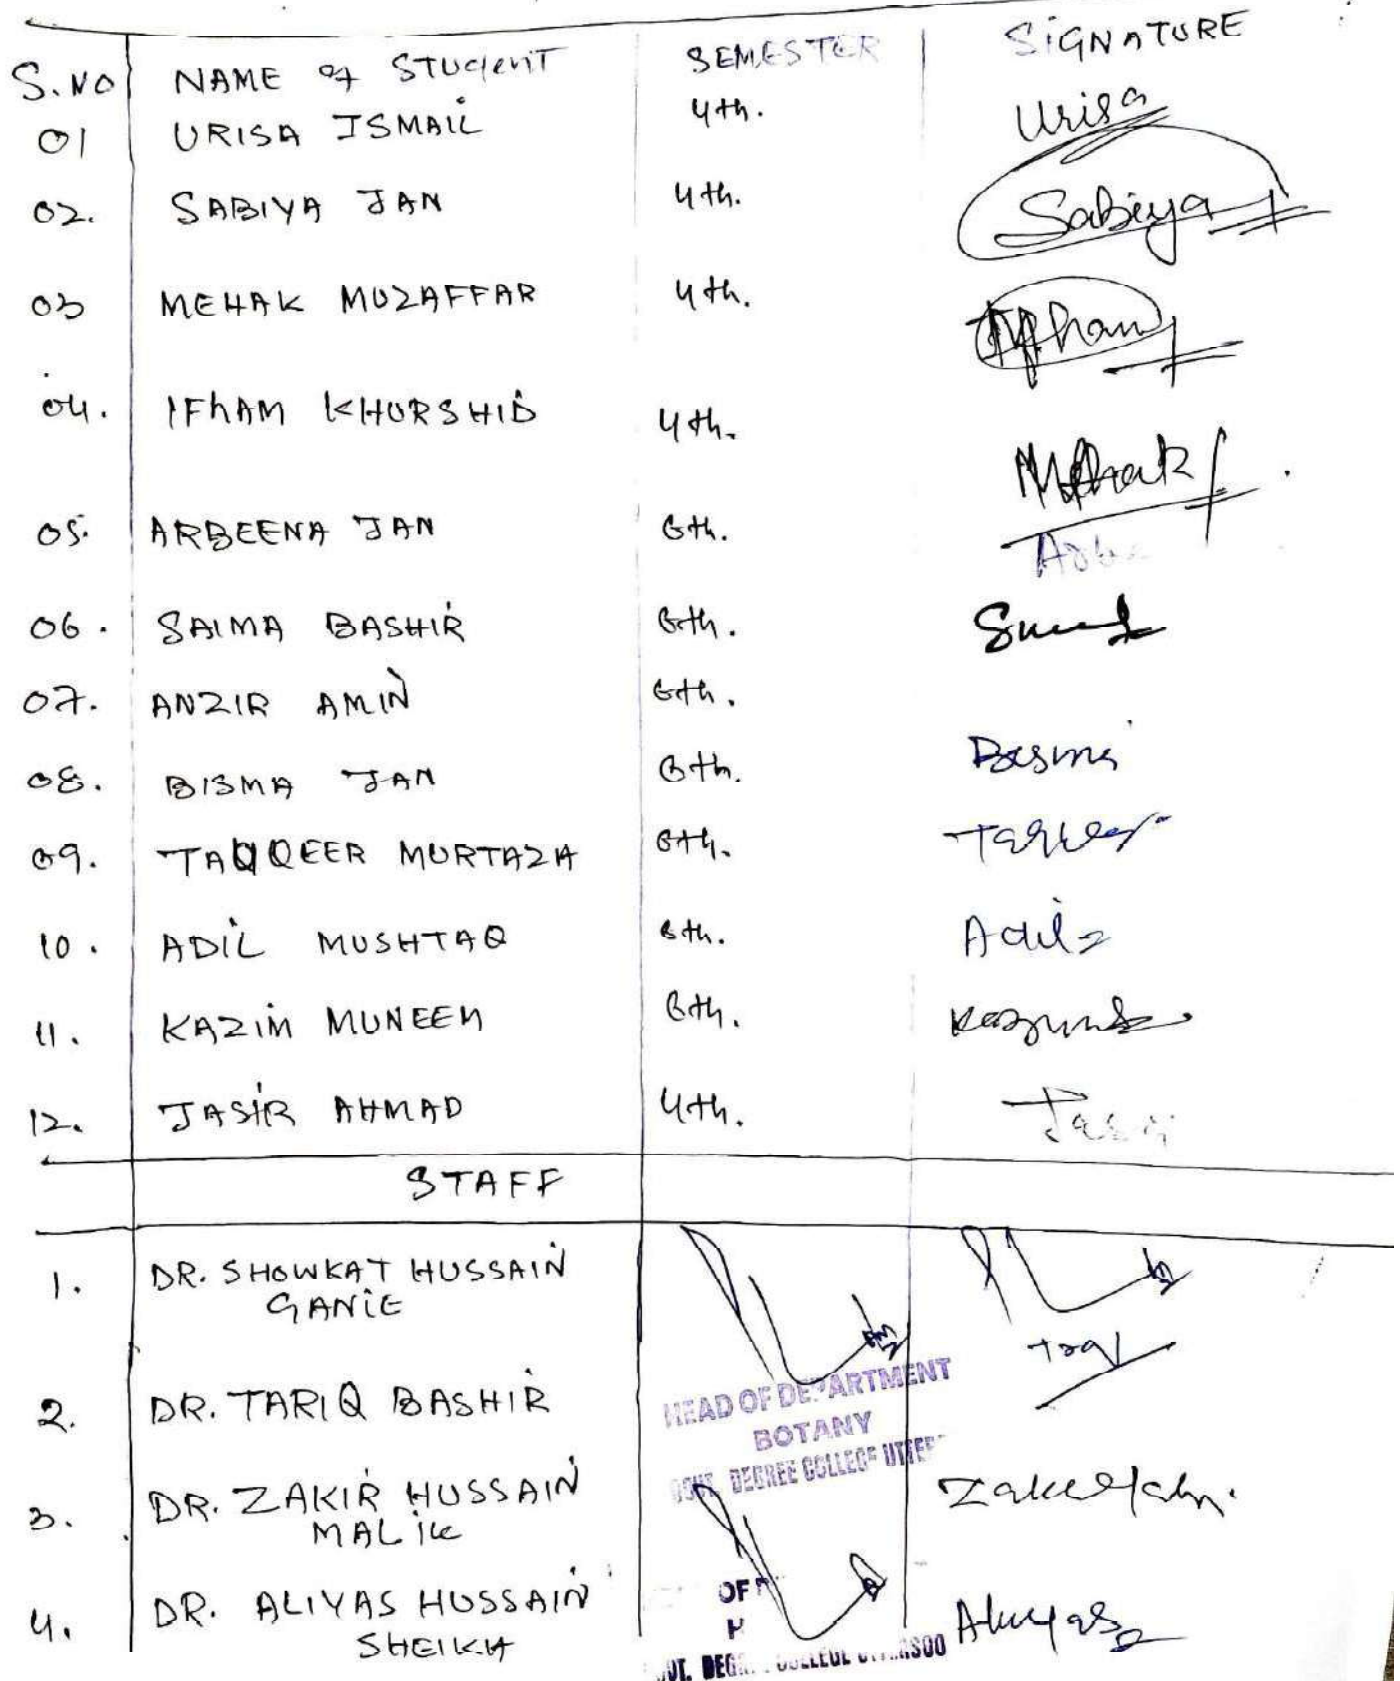 S.NO NAME of STUdENT SEMESTER SiGNATURE
01 URISA ISMAIL 4th. Urisa
02. SABIYA JAN 4th. Sabiya
03 MEHAK MUZAFFAR 4th. Ifham
04. IFhAM KHURSHID 4th. Mehak
05. ARBEENA JAN 6th.
06. SAIMA BASHIR 6th.
07. ANZIR AMIN 6th.
08. BISMA JAN 6th. Bisma
09. TAUQEER MURTAZA 6th.
10. ADIL MUSHTAQ 6th. Adil
11. KAZIM MUNEEM 6th.
12. JASIR AHMAD 4th.
STAFF
1. DR. SHOWKAT HUSSAIN
GANIE
2. DR. TARIQ BASHIR
HEAD OF DEPARTMENT
BOTANY
GOVT. DEGREE COLLEGE
3. DR. ZAKIR HUSSAIN
MALIK
4. DR. ALIYAS HUSSAIN
SHEIKH
OF
COLLEGE